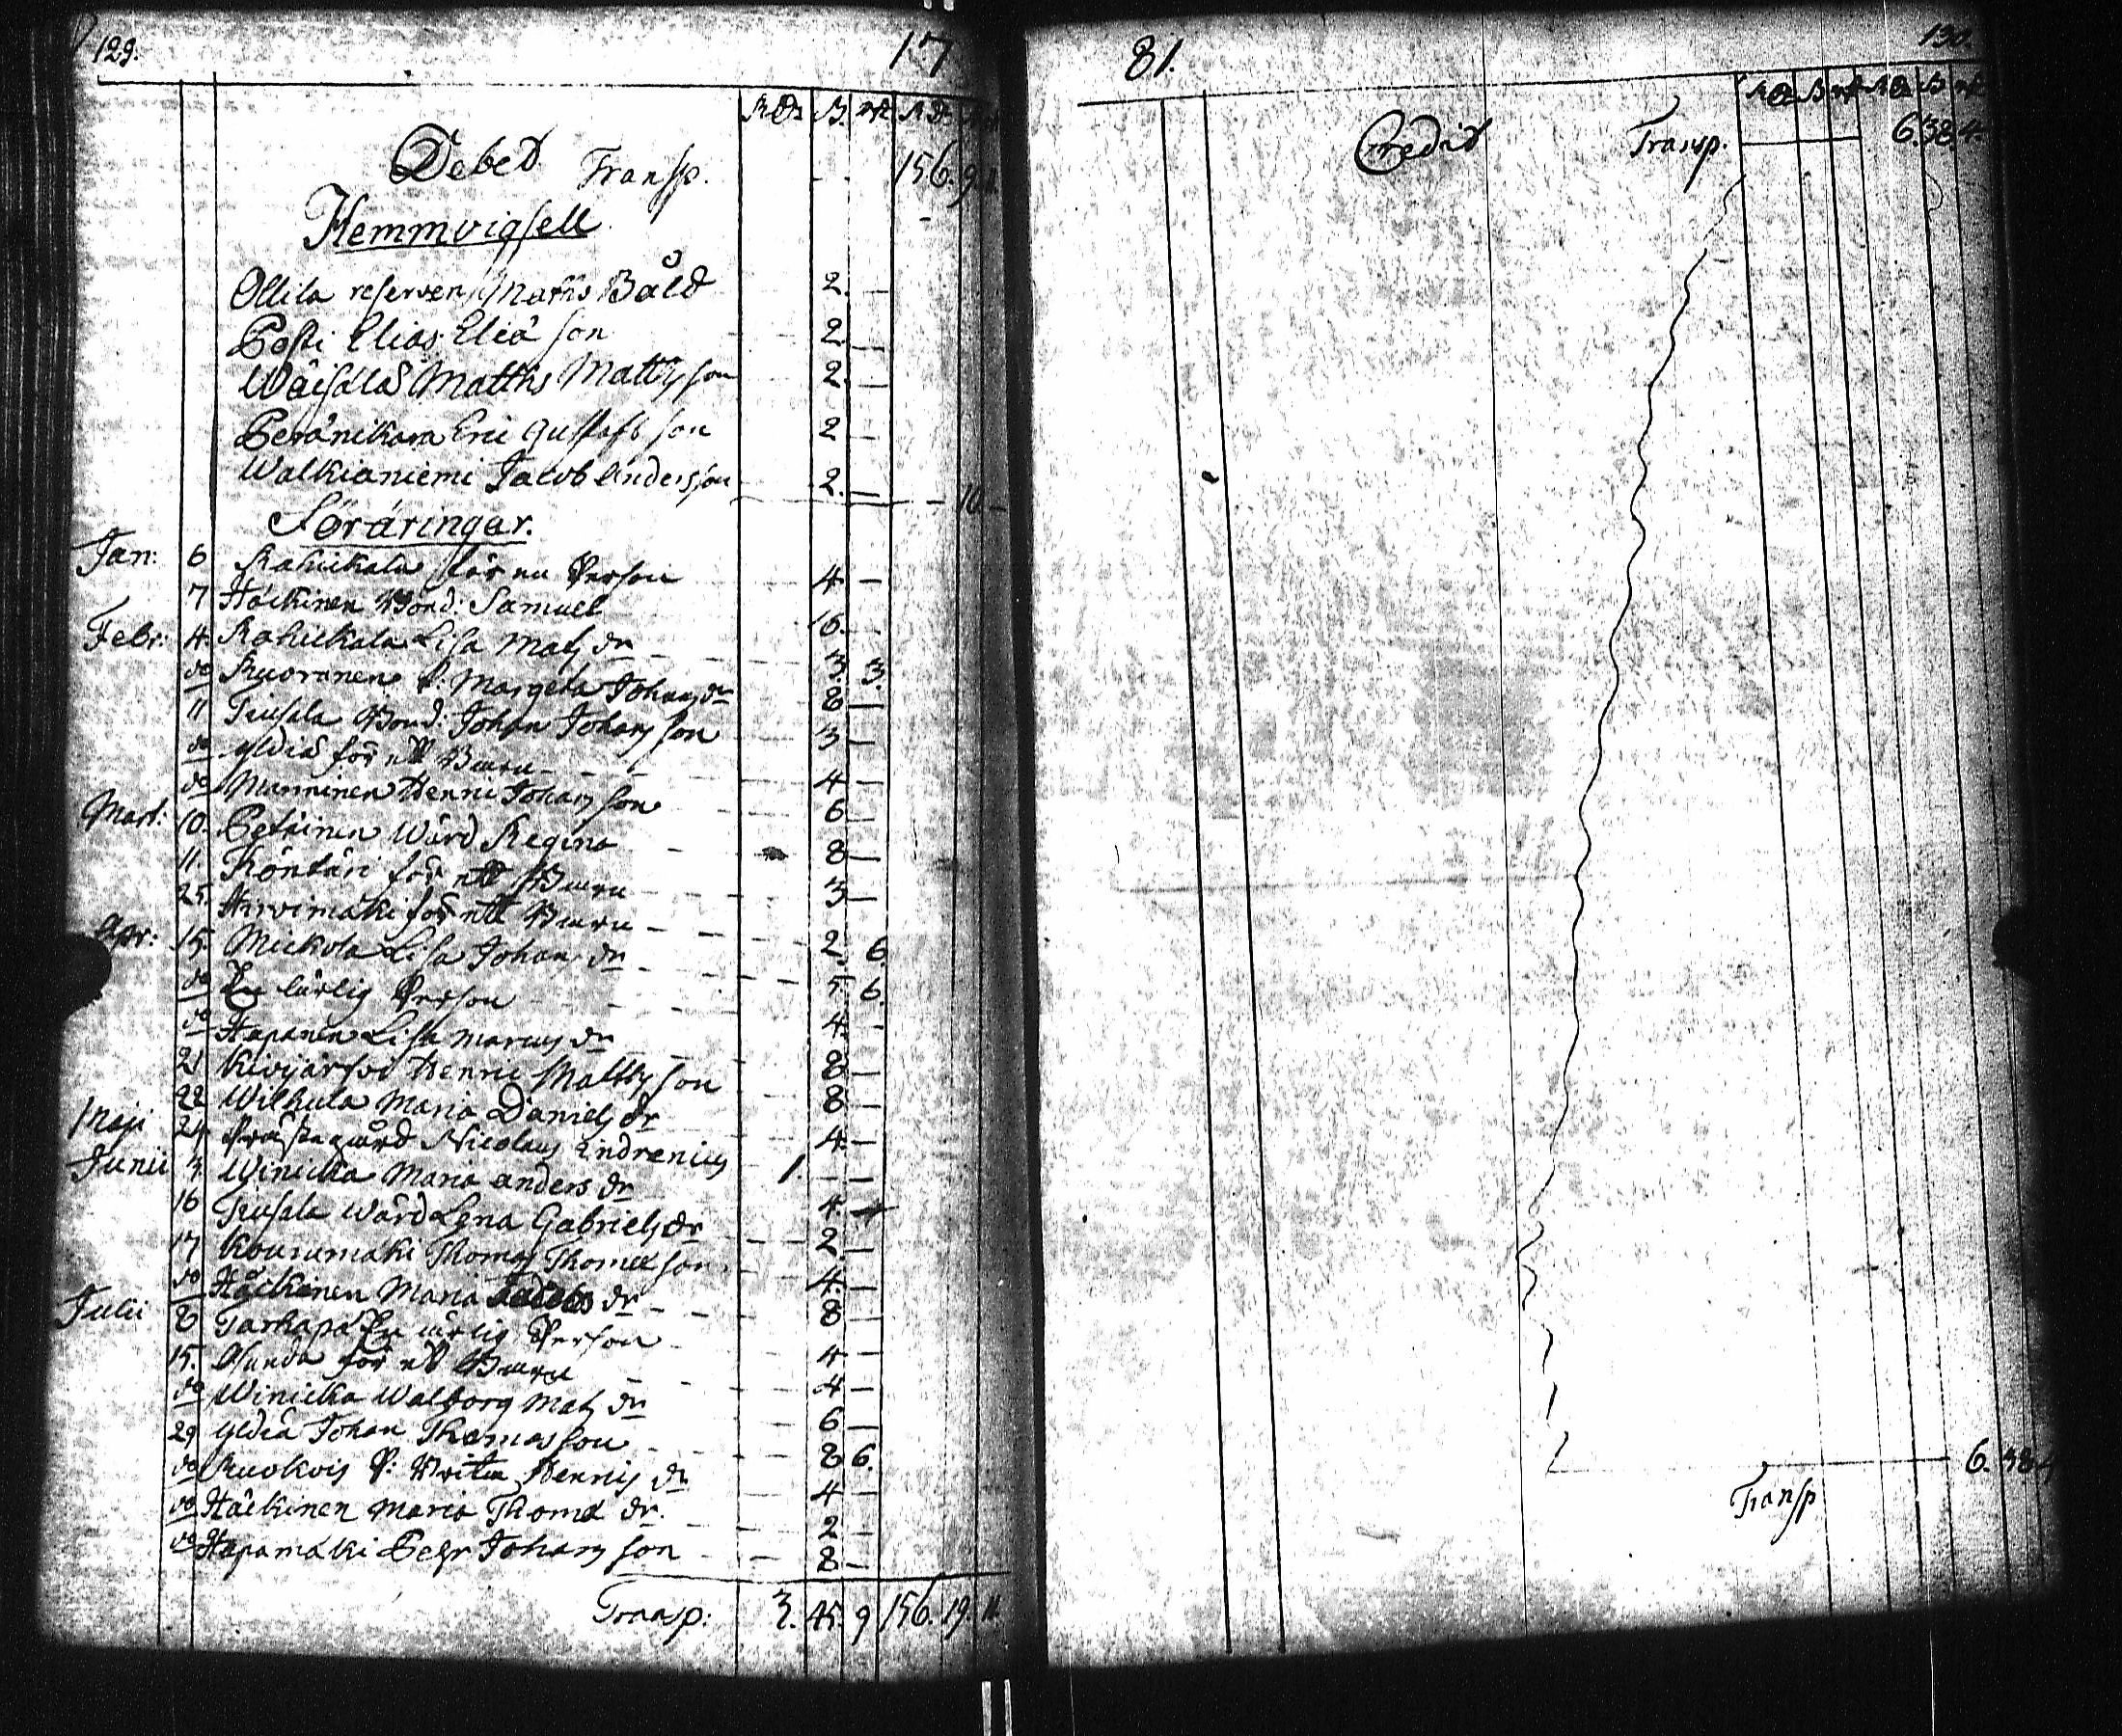 129. 17
Rdr ß. rst Rdr
Debet Transp. 156. 9. 11.
Hemmvigsell
Ollila reserven Matths Båld 2. —
Posti Elias Eliæ son 2. —
Matths Matts son 2. —
Peränikara Eric Gustafs son 2 —
Walkianiemi Jacob Anders son 2. — — 10. —
Töräringar.
Jan: 6 Rahickala för en Person 4 —
7 Häckinen Bond: Samuel 16. —
Febr: 4. Rahickala Lisa Mats dr 3. 3.
do Ruoranen P: Margeta Johans dr 8 —
11 Teusala Bond: Johan Johans son 3 —
do Yldiä för ett Barn 4 —
do Manninen Henric Johans son 6 —
Mart: 10. Petäinen Wärd Regina 8 —
11. Köntäri för ett Barn 3 —
25. Hirvimäki för ett Barn 2. 6.
Apr: 15. Mickola Lisa Johans dr 5. 6.
do En färlig Person 4. —
do Hapanen Lisa Marcus dr 8 —
21 Kivijärfvi Henric Matts son 8 —
22 Wilkula Maria Daniels dr 4. —
Maji 24 Prästegård Nicolaus Indrenius 1. — —
Junii 3. Winicka Maria Anders dr 4 —
16 Teusala Wärd Lena Gabriels dr 2. —
17 Kourumäki Thomas Thomæ son 4. —
do Häckinen Maria Jacobs dr 8 —
Julii 8 Tarhapä En färlig Person 4 —
15. Asunda för ett Barn 4 —
do Winicka Walborg Mats dr 6 —
29 Yldiä Johan Thomas son 8 6.
do Ruokois P: Brita Henrics dr 4 —
do Häckinen Maria Thomæ dr. 2 —
do Hapamäki Pehr Johans son 8 —
Transp: 3. 45. 9 156. 19. 11
81. 130.
Rdr ß rst Rdr ß rst
Credit Transp. 6. 38. 4.
6. 38. 4
Transp